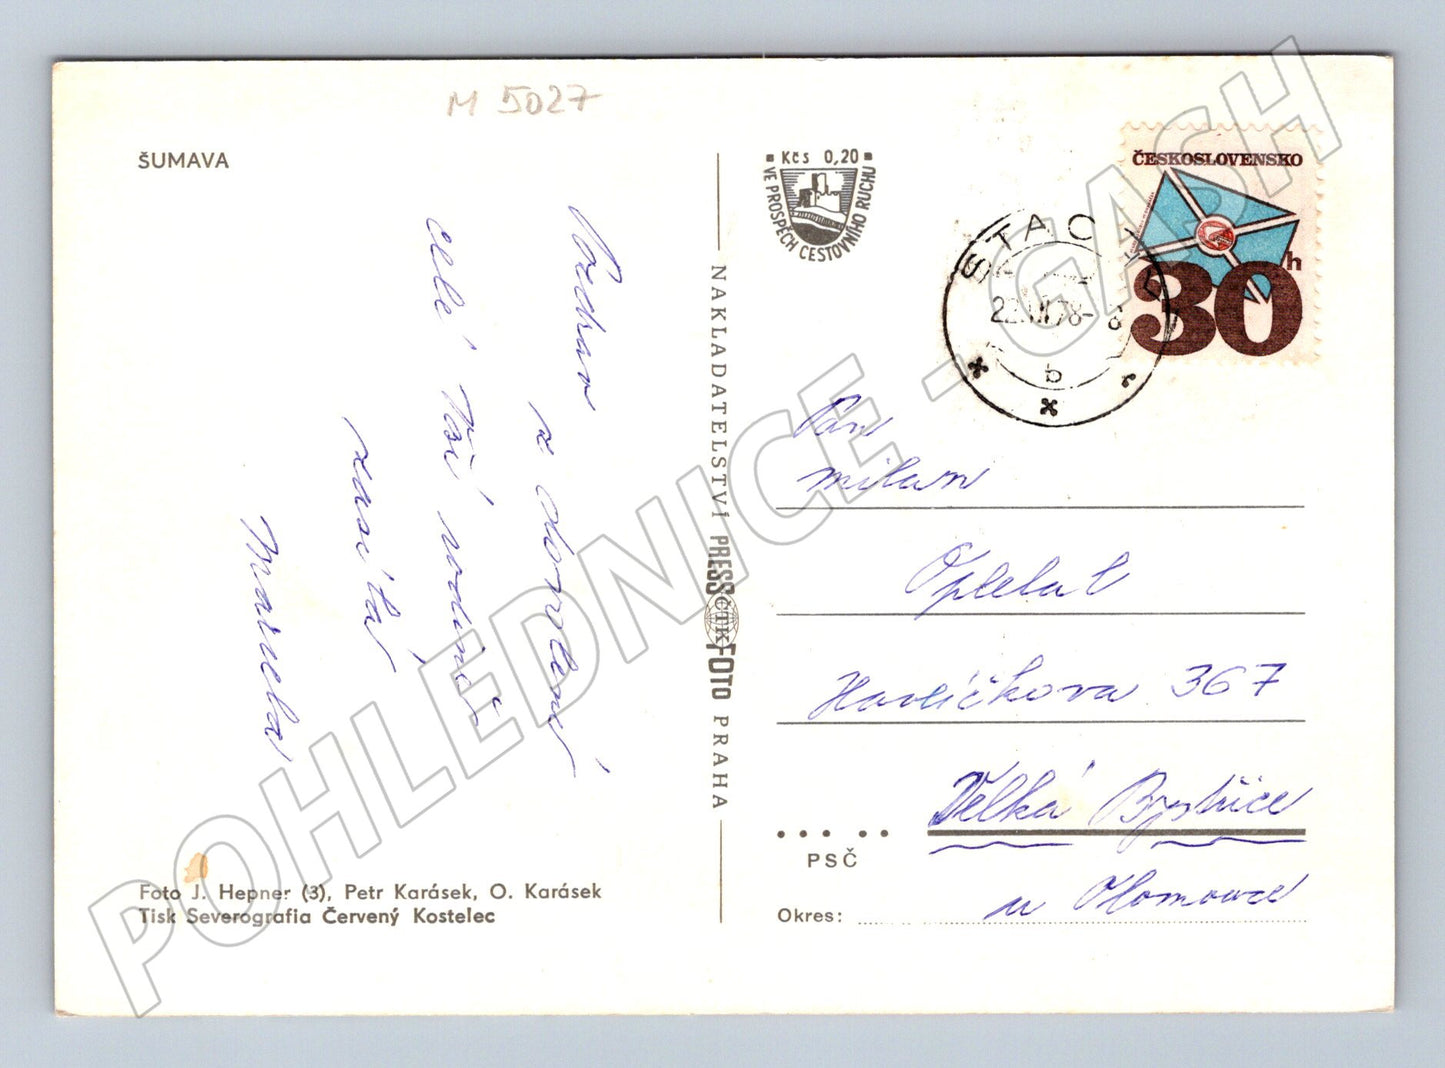 M 5027
ŠUMAVA
Pozdrav
z dovolené
celé Vaší rodině
zasílá
Marcela
Foto J. Hepner (3), Petr Karásek, O. Karásek
Tisk Severografia Červený Kostelec
NAKLADATELSTVÍ PRESSFOTO PRAHA
ČTK
Kčs 0,20
VE PROSPĚCH CESTOVNÍHO RUCHU
STACHY
22. 78- 8
b
ČESKOSLOVENSKO
30h
Pan
Milan
Oplelat
Havlíčkova 367
Velká Bystřice
PSČ
u Olomouce
Okres:
POHLEDNICE - GASH